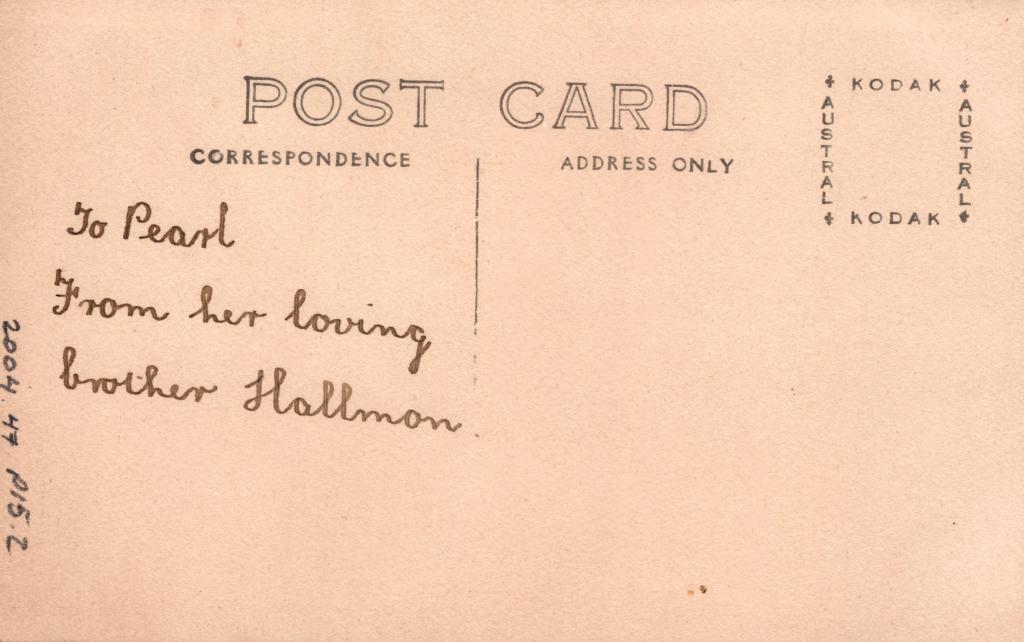 POST CARD
CORRESPONDENCE
ADDRESS ONLY
KODAK
AUSTRAL
AUSTRAL
KODAK
To Pearl
From her loving
brother Hallmon.
2004.47 P15.2